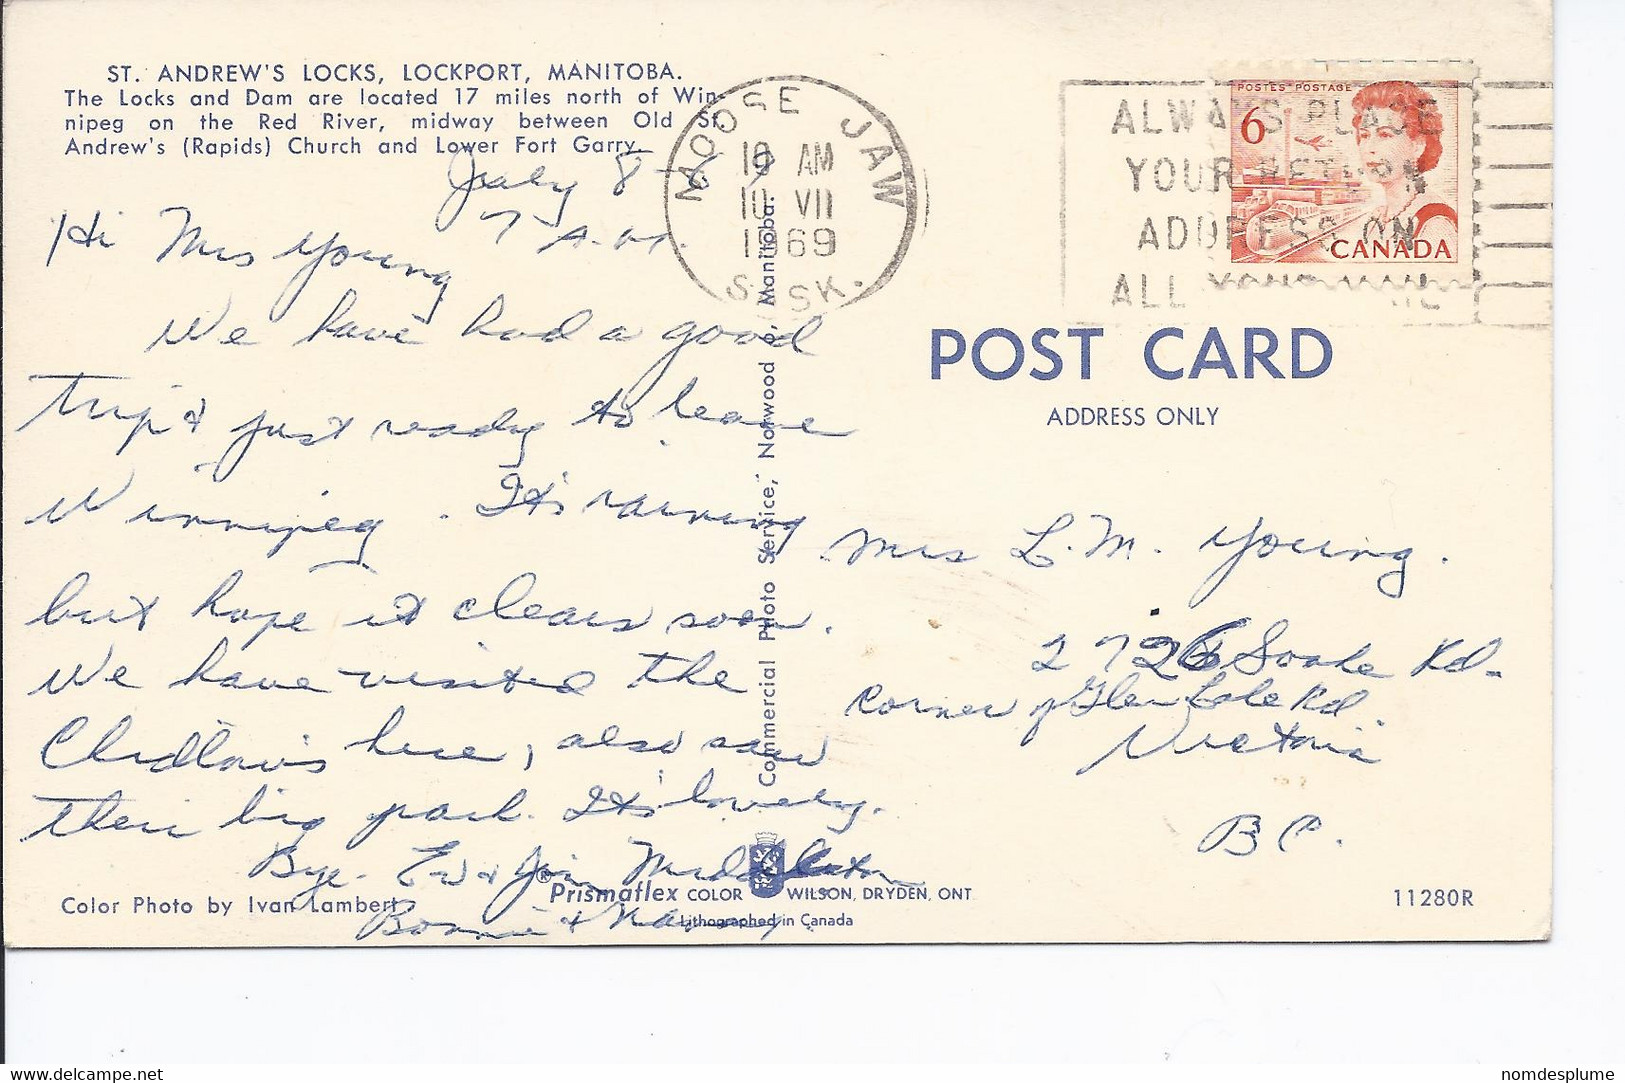 ST. ANDREW'S LOCKS, LOCKPORT, MANITOBA.
The Locks and Dam are located 17 miles north of Win-
nipeg on the Red River, midway between Old St.
Andrew's (Rapids) Church and Lower Fort Garry.
July 8-69
7 A.M.
Hi Mrs Young
We have had a good
trip & just ready to leave
Winnipeg. It's raining
but hope it clears soon.
We have visited the
here, also saw
their big park. It's lovely.
Bye. Ed & Middleton
Bonnie & Nancy.
Color Photo by Ivan Lambert
MOOSE JAW
10 AM
10 VII
1969
SASK.
ALWAYS PLACE
YOUR RETURN
ADDRESS ON
ALL YOUR MAIL
POSTES POSTAGE
6
CANADA
POST CARD
ADDRESS ONLY
Commercial Photo Service, Norwood P.O. Manitoba.
Mrs L.M. Young.
2726 Sooke Rd.
Corner of Glen Lake Rd.
Victoria
B C.
®Prismaflex COLOR WILSON, DRYDEN, ONT
Lithographed in Canada
11280R
delcampe.net
nomdesplume